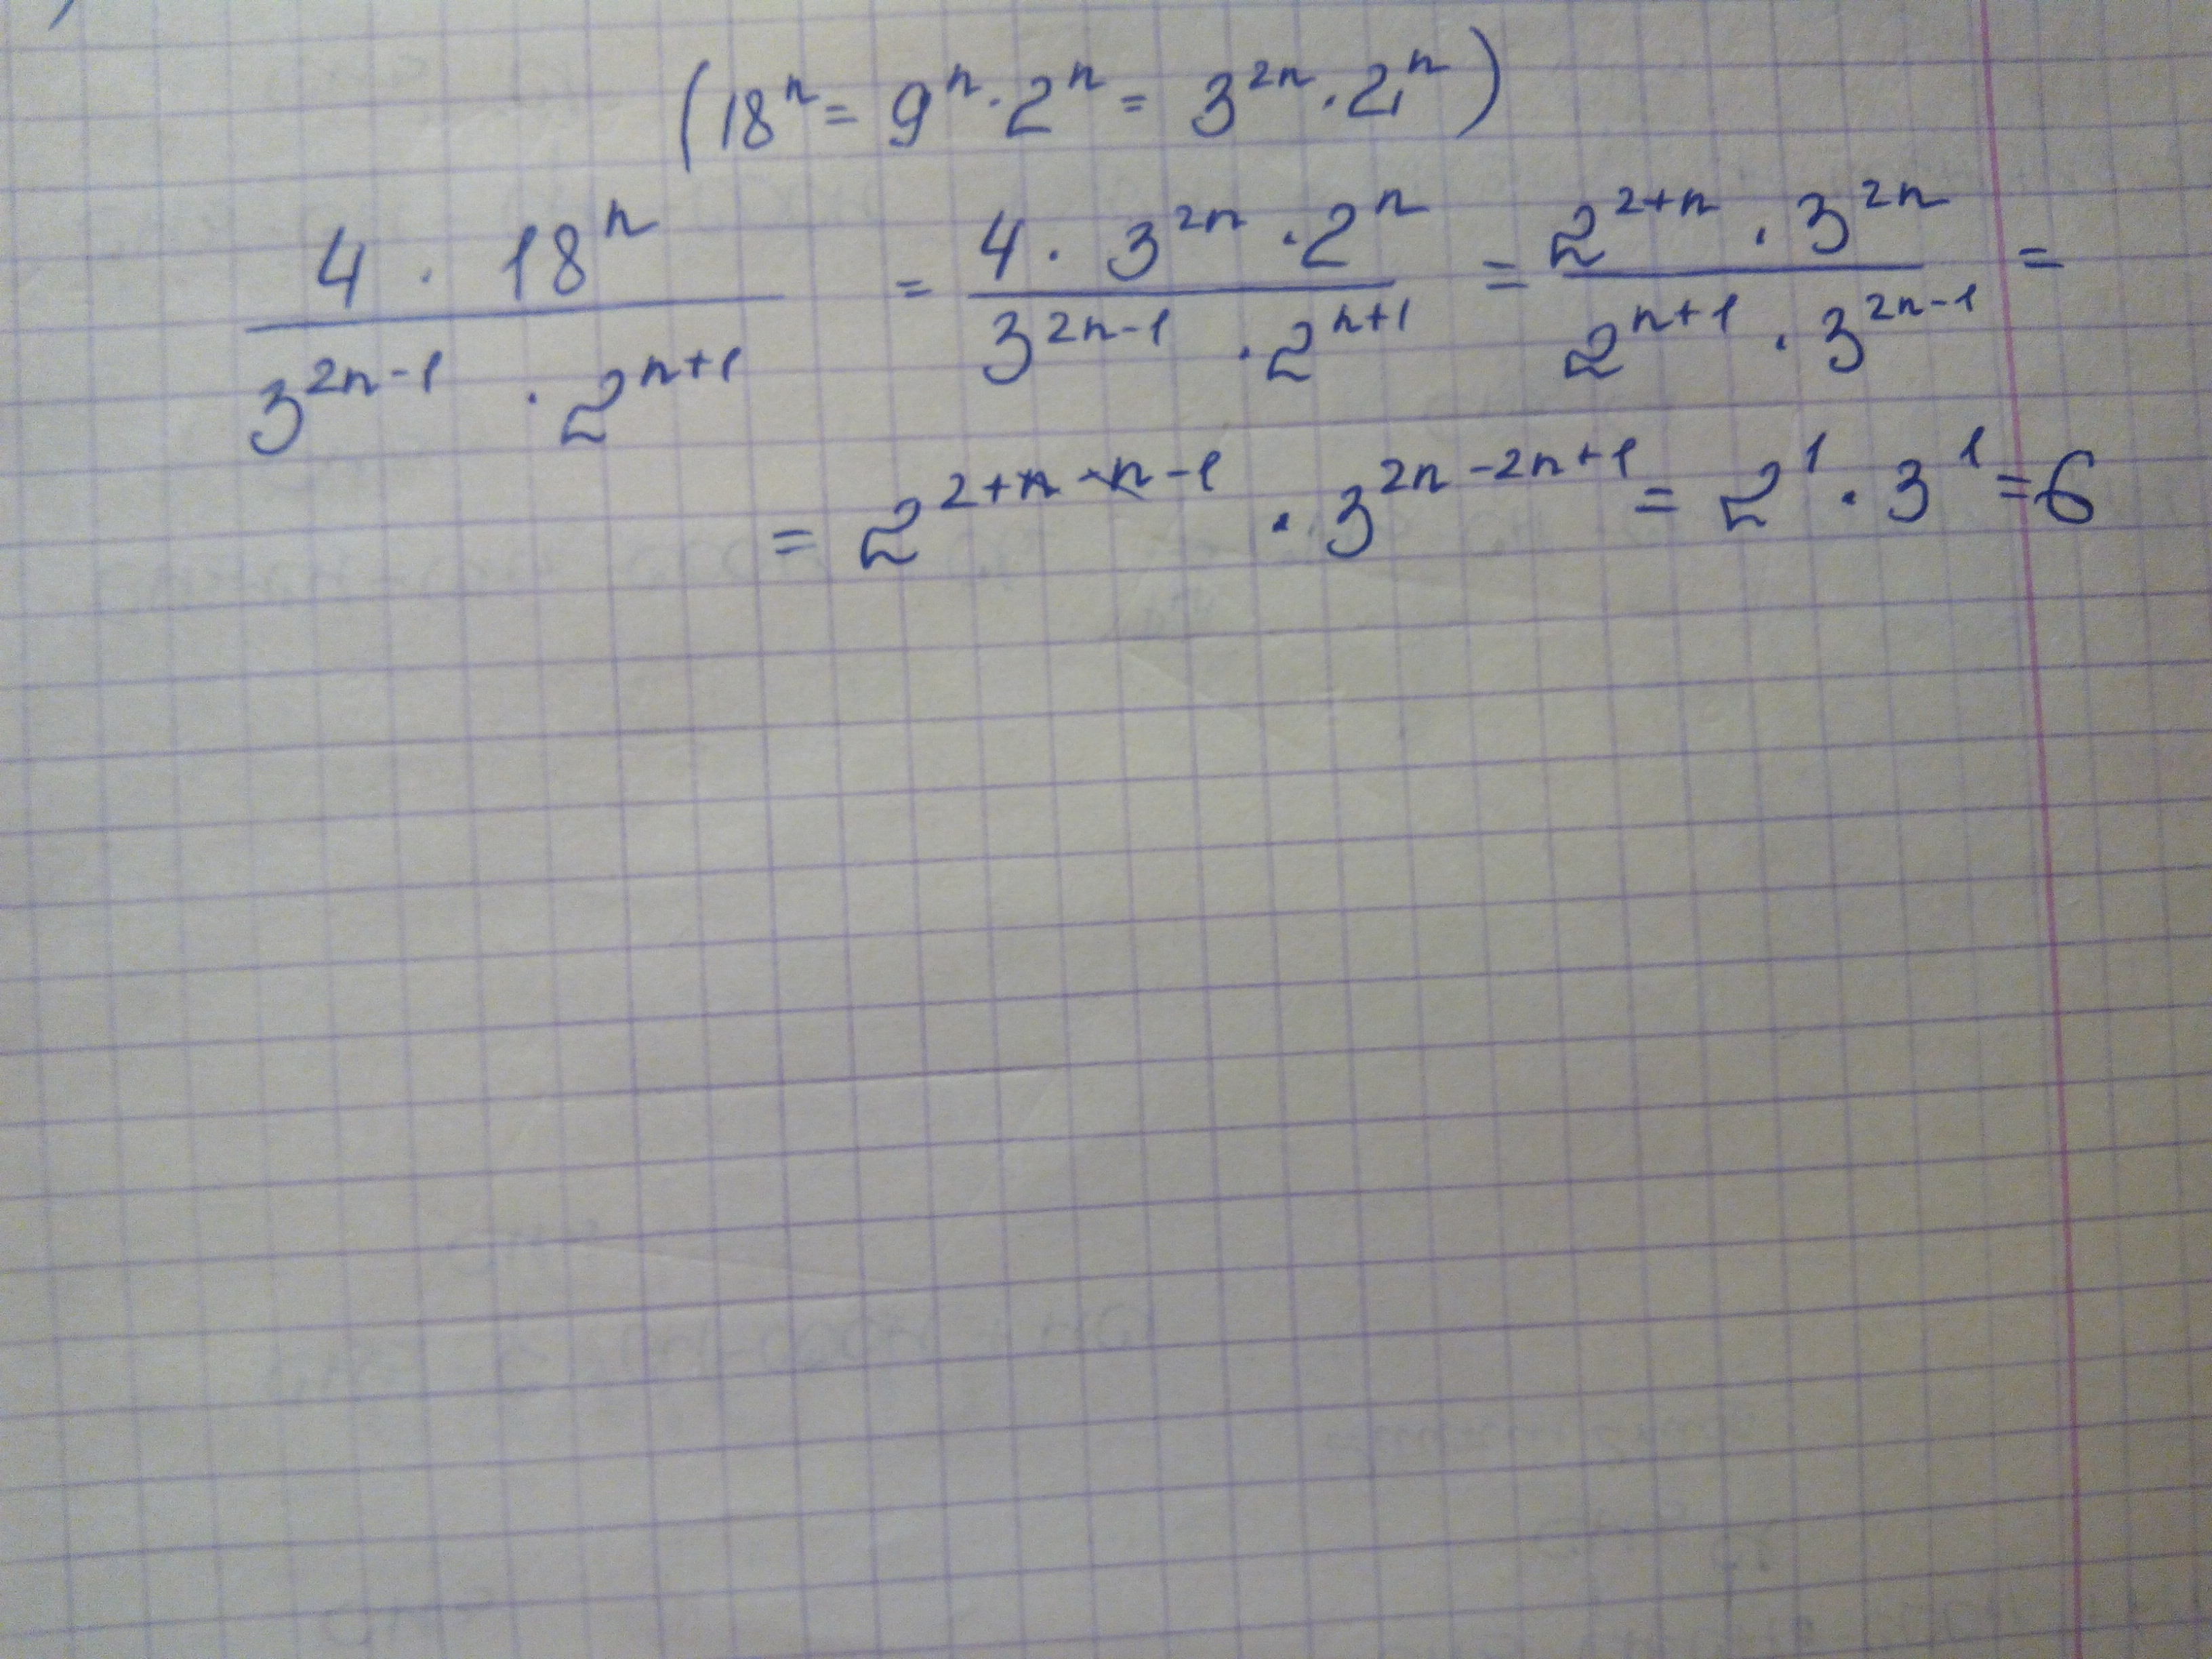 (18^n = 9^n · 2^n = 3^{2n} · 2^n)
\frac{4 · 18^n}{3^{2n-1} · 2^{n+1}} = \frac{4 · 3^{2n} · 2^n}{3^{2n-1} · 2^{n+1}} = \frac{2^{2+n} · 3^{2n}}{2^{n+1} · 3^{2n-1}} =
= 2^{2+n-n-1} · 3^{2n-2n+1} = 2^1 · 3^1 = 6